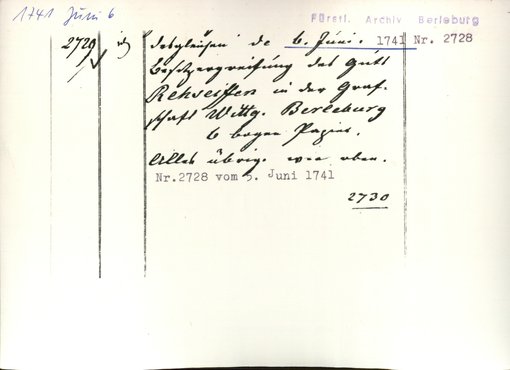 1741 Juni 6
Fürstl. Archiv Berleburg
2729 desgleichen de 6. Juni. 1741 Nr. 2728
Besitzergreifung des Guts
Rehseiffen in der Graf-
schaft Wittg. Berleburg
6 bogen Papier.
Alles übrig. wie oben.
Nr.2728 vom 5. Juni 1741
2730